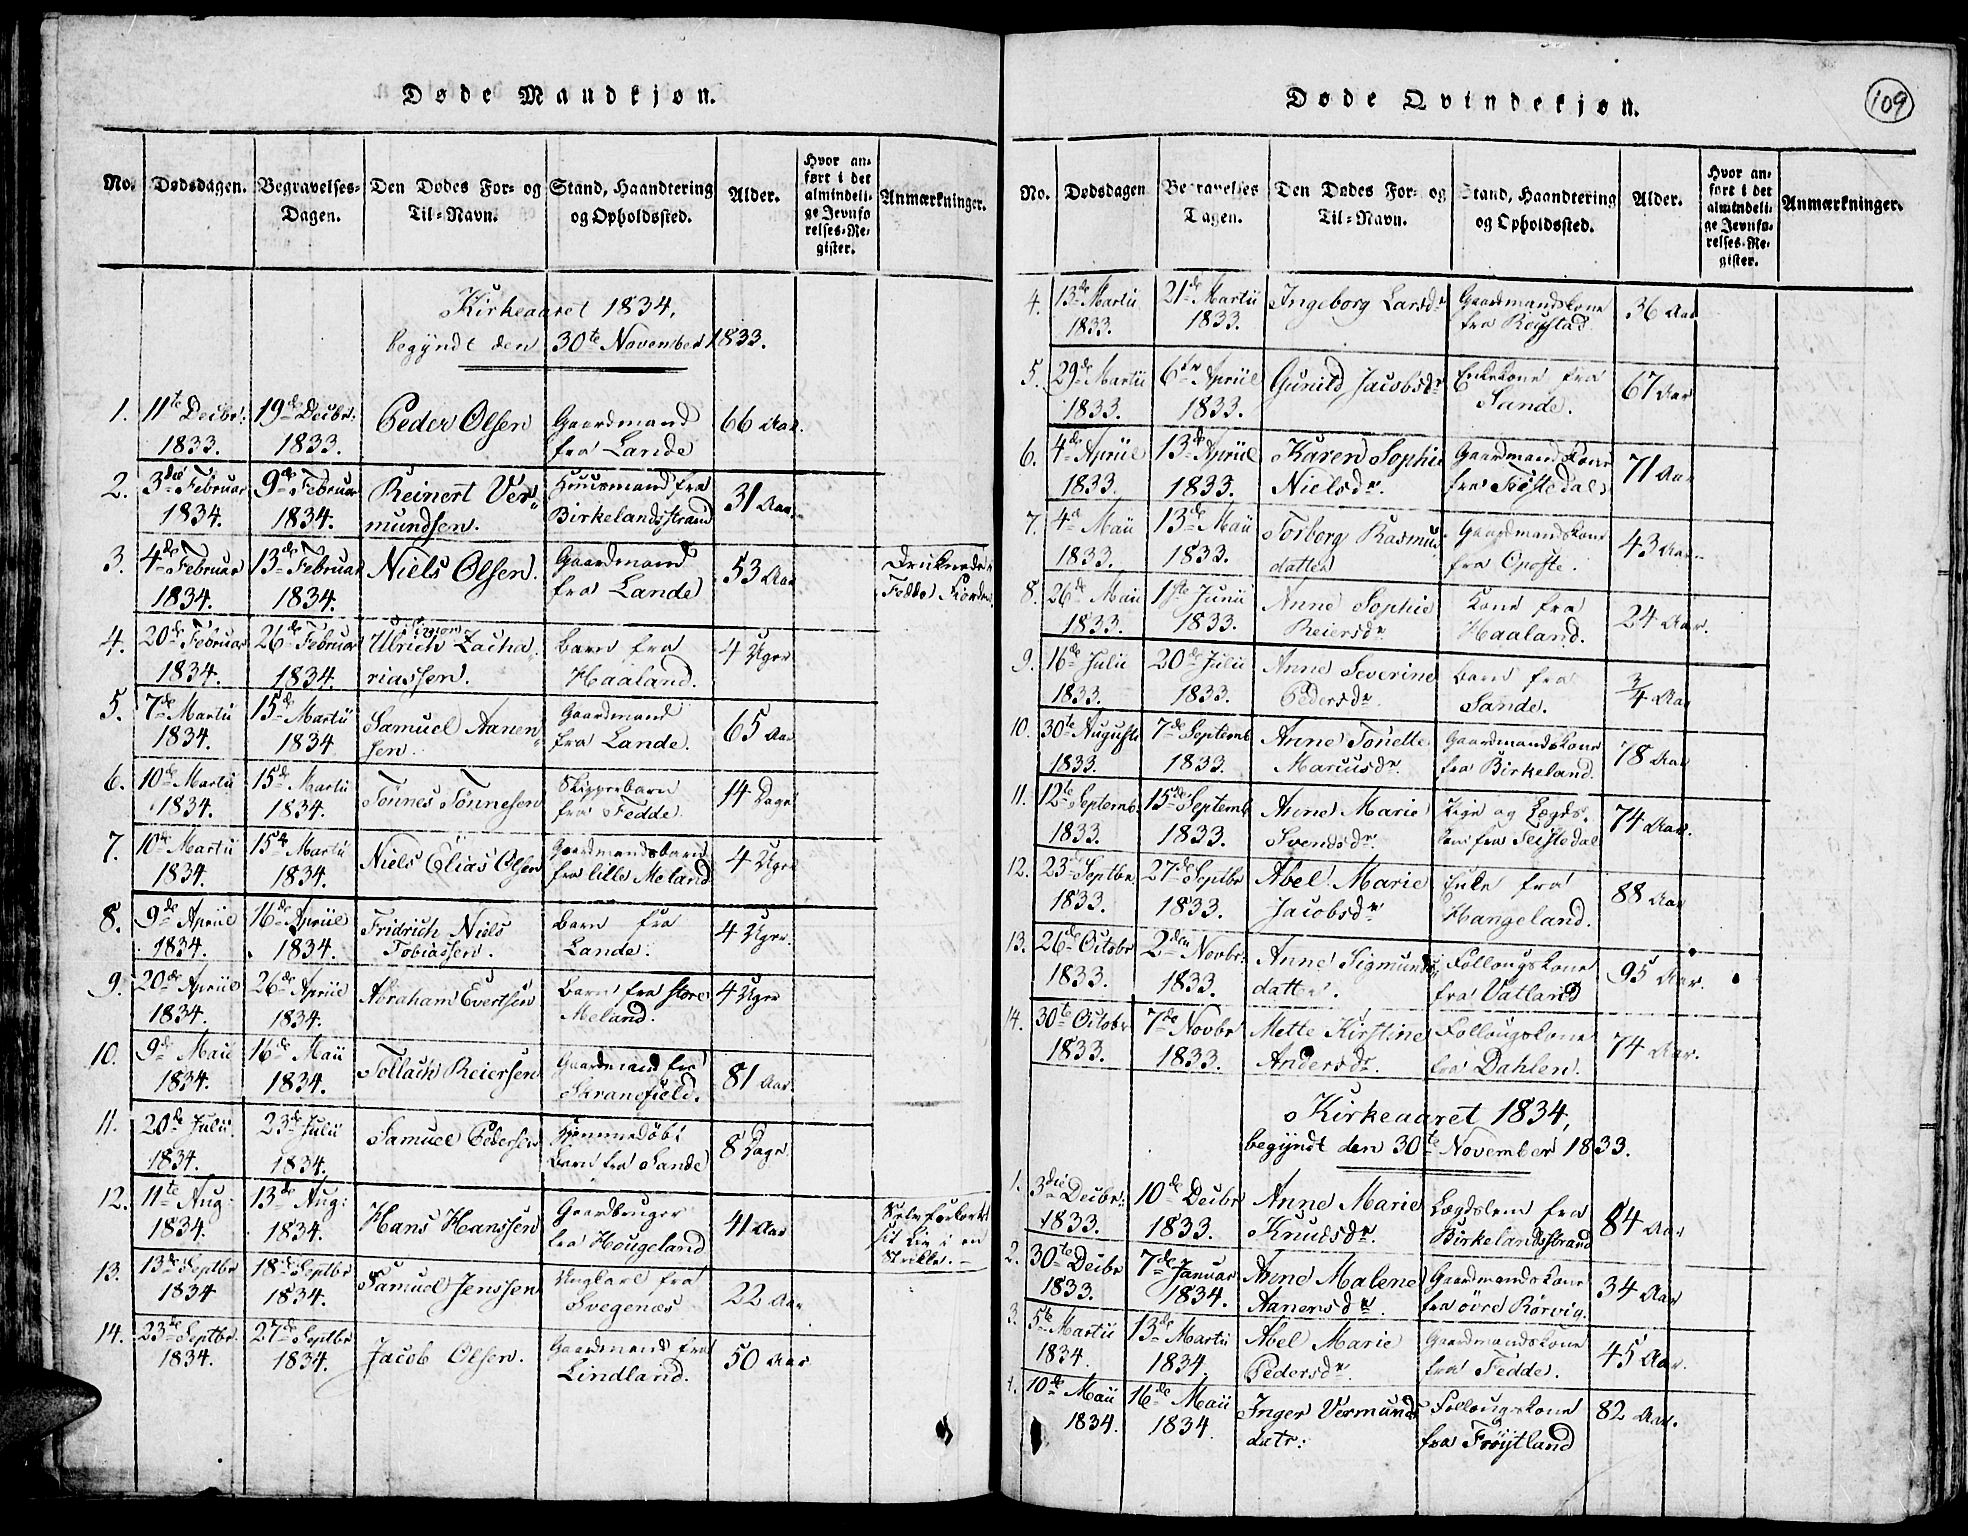 Døde Mandkjøn.
No. Dødsdagen. Begravelses-Dagen. Den Dødes For- og Til-Navn. Stand, Haandtering og Opholdssted. Alder. Hvor anført i det almindelige Jevnførelses-Register. Anmærkninger.
Kirkeaaret 1834,
begyndt den 30te November 1833.
1. 11te Decbr: 1833. 19de Decbr: 1833. Peder Olsen Gaardmand fra Lande 66 Aar.
2. 3die Februar 1834. 9de Februar 1834. Reinert Vermundsen. Huusmand fra Birkelandsstrand 31 Aar.
3. 4de Februar 1834. 13de Februar 1834. Niels Olsen. Gaardmand fra Lande 53 Aar Druknede i Fedde Fjorden
4. 20de Februar 1834. 26de Februar 1834. Ulrich Zachariassen. Barn fra Haaland. 4 Uger
5. 7de Martii 1834. 15de Martii 1834 Samuel Aanensen. Gaardmand fra Lande. 65 Aar
6. 10de Martii 1834. 15de Martii 1834. Tønnes Tønnesen Skipperbarn fra Fedde. 14 Dage
7. 10de Martii 1834. 15de Martii 1834. Niels Elias Olsen Gaardmandsbarn fra lille Meland 4 Uger
8. 9de Apriil 1834. 16de Apriil 1834. Fridrich Niels Tobiassen. Barn fra Lande. 4 Uger.
9. 20de Apriil 1834. 26de Apriil 1834. Abraham Evertsen Barn fra store Meland. 4 Uger
10. 9de Maii 1834. 16de Maii 1834. Tollach Reiersen Gaardmand fra Skranefield. 81 Aar.
11. 20de Julii 1834. 23de Julii 1834. Samuel Pedersen Hjemmedøbt Barn fra Sande 8 Dage
12. 11te Aug: 1834. 13de Aug: 1834. Hans Hanssen Gaardbruger fra Hougeland 41 Aar Selv forkortet sit Liv i en Strikke.
13. 13de Septbr 1834 18de Septbr 1834. Samuel Jenssen Ungkarl fra Svegenæs 22 Aar
14. 23de Septbr. 1834. 27de Septbr 1834. Jacob Olsen. Gaardmand fra Lindland. 50 Aar
Døde Qvindekjøn.
109
No. Dødsdagen Begravelses Dagen. Den Dødes For- og Til-Navn. Stand, Haandtering og Opholdssted. Alder. Hvor anført i det almindelige Jevnførelses-Register. Anmærkninger.
4. 13de Martii 1833. 21de Martii 1833. Ingeborg Larsdr Gaardmandskone fra 36 Aar
5. 29de Martii 1833. 6te Apriil 1833. Gunild Jacobsdr Enkekone fra Sande. 67 Aar
6. 4de Apriil 1833. 13de Apriil 1833. Karen Sophie Nielsdr. Gaardmand Kone fra 71 Aar
7. 4de Maii 1833. 13de Maii 1833. Torborg Rasmusdatter Gaardmandskone fra Opofte. 43 Aar
8. 26de Maii 1833. 1ste Junii 1833. Anne Sophie Reiersdr Kone fra Haaland. 24 Aar.
9. 16de Julii 1833. 20de Julii 1833. Anne Severine Pedersdr. Barn fra Sande. 3/4 Aar
10. 30te Augusti 1833. 7de Septemb 1833. Anne Tonette Marcusdr. Gaardmandskone fra Birkeland. 78 Aar
11. 12te Septemb. 1833. 15de Septemb 1833. Anne Marie Svendsdr. Pige og Lægdslem fra 74 Aar.
12. 23de Septbr 1833. 27de Septbr 1833. Abel Marie Jacobsdr Enke fra Hangeland. 88 Aar
13. 26de Octobr 1833. 2den Novbr. 1833. Anne Sigmundsdatter. Follougskone fra Vatland 95 Aar.
14. 30te Octobr 1833. 7de Novbr 1833. Mette Kirstine Andersdr. Follougskone fra Dahlen. 74 Aar.
Kirkeaaret 1834,
begyndt den 30te November 1833.
1. 3die Decbr: 1833. 10de Decbr 1833. Anne Marie Knudsdr. Lægdslem fra Birkelandsstrand 84 Aar
2. 30te Decbr 1833. 7de Januar 1834. Anne Malene Aanensdr. Gaardmandskone fra øvre Rørvig. 34 Aar
3. 5te Martii 1834. 13de Martii 1834. Abel Marie Pedersdr. Gaardmandskone fra Fedde. 45 Aar.
4. 10de Maii 1834. 16de Maii 1834. Inger Vermundsdatr: Follougskone fra Frøytland 82 Aar.